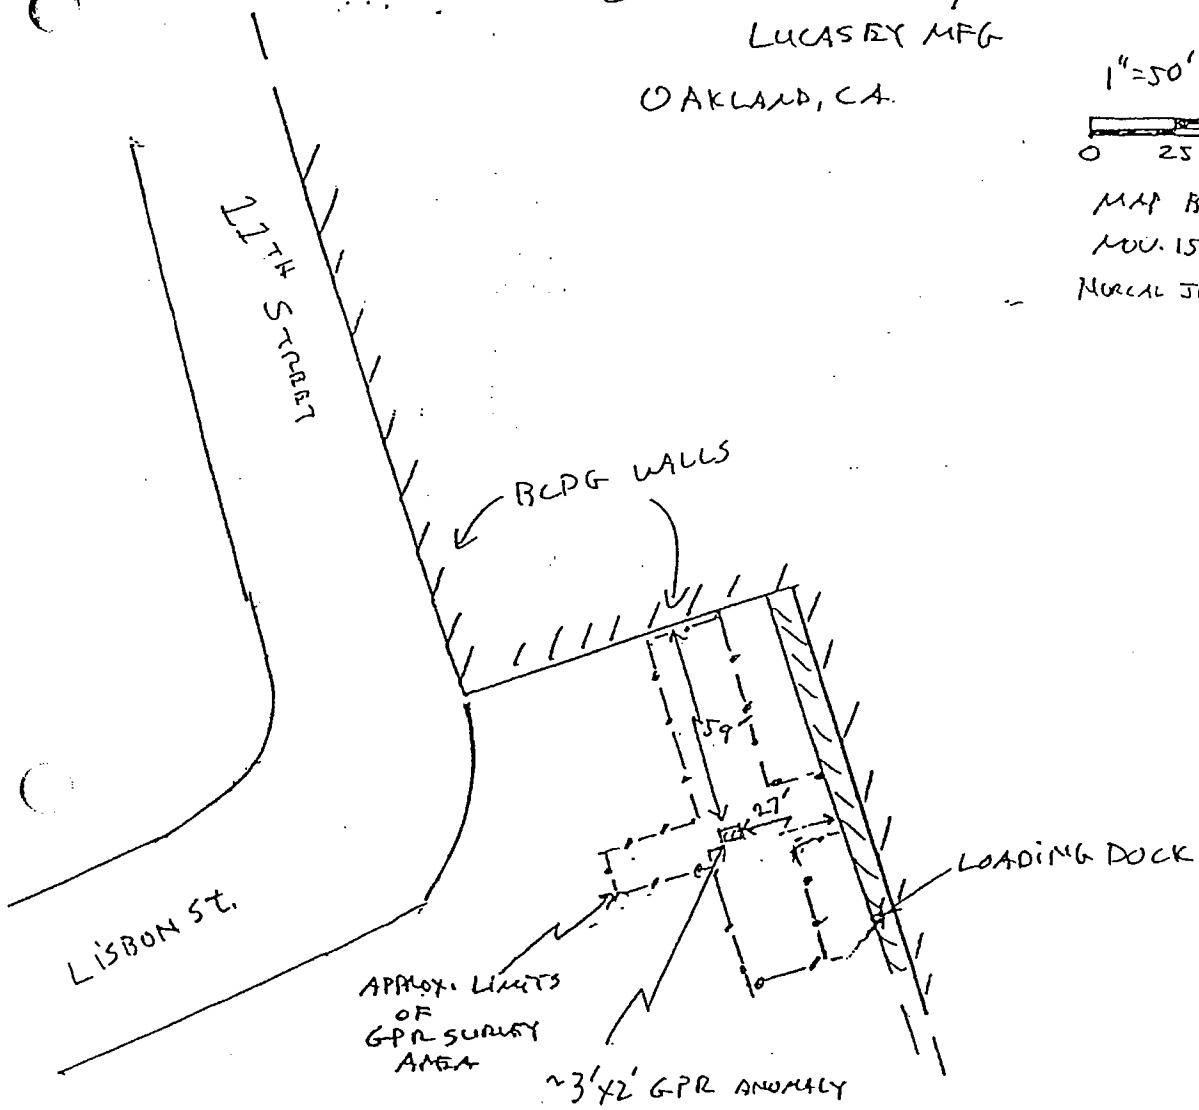 LUCASEY MFG
OAKLAND, CA.
1"=50'
0 25
MAP
NOV. 15
NORCAL
11TH STREET
BLDG WALLS
59'
27'
LOADING DOCK
LISBON ST.
APPROX. LIMITS
OF
GPR SURVEY
AREA
~3'X2' GPR ANOMALY